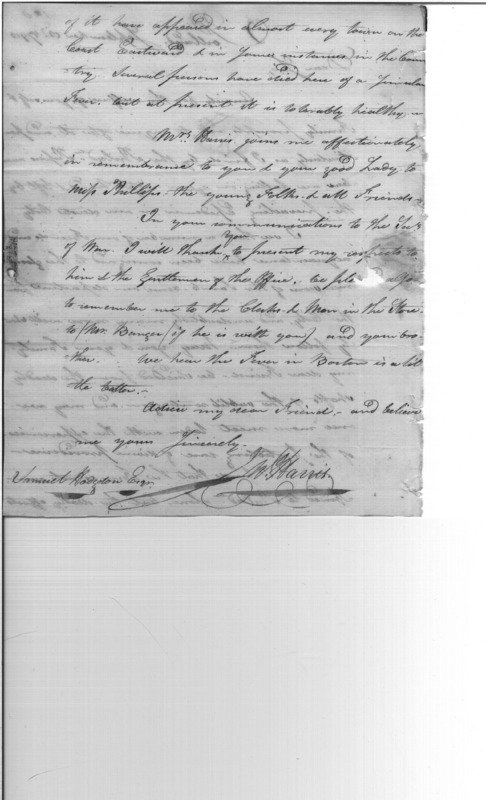 of it have appeared in almost every town on the
Coast Eastward & in some instances in the Coun
try. Several persons have died here of a Similar
Fever. but at present it is tolerably healthy.
Mrs. Harris joins me affectionately
in remembrance to you & your good Lady to
Miss Phillips the young Folks & all Friends.
In your communications to the Secy
of War. I will thank you to present my respects to
him & the Gentlemen of the Office. be
to remember me to the Clerks & Man in the Store.
to (Mr. if he is with you) and your bro-
ther. We hear the Fever in Boston is a lit
tle better.-
Adieu my dear Friend,- and believe
me yours Sincerely.
Jno. Harris
Samuel Hodgdon Esq.